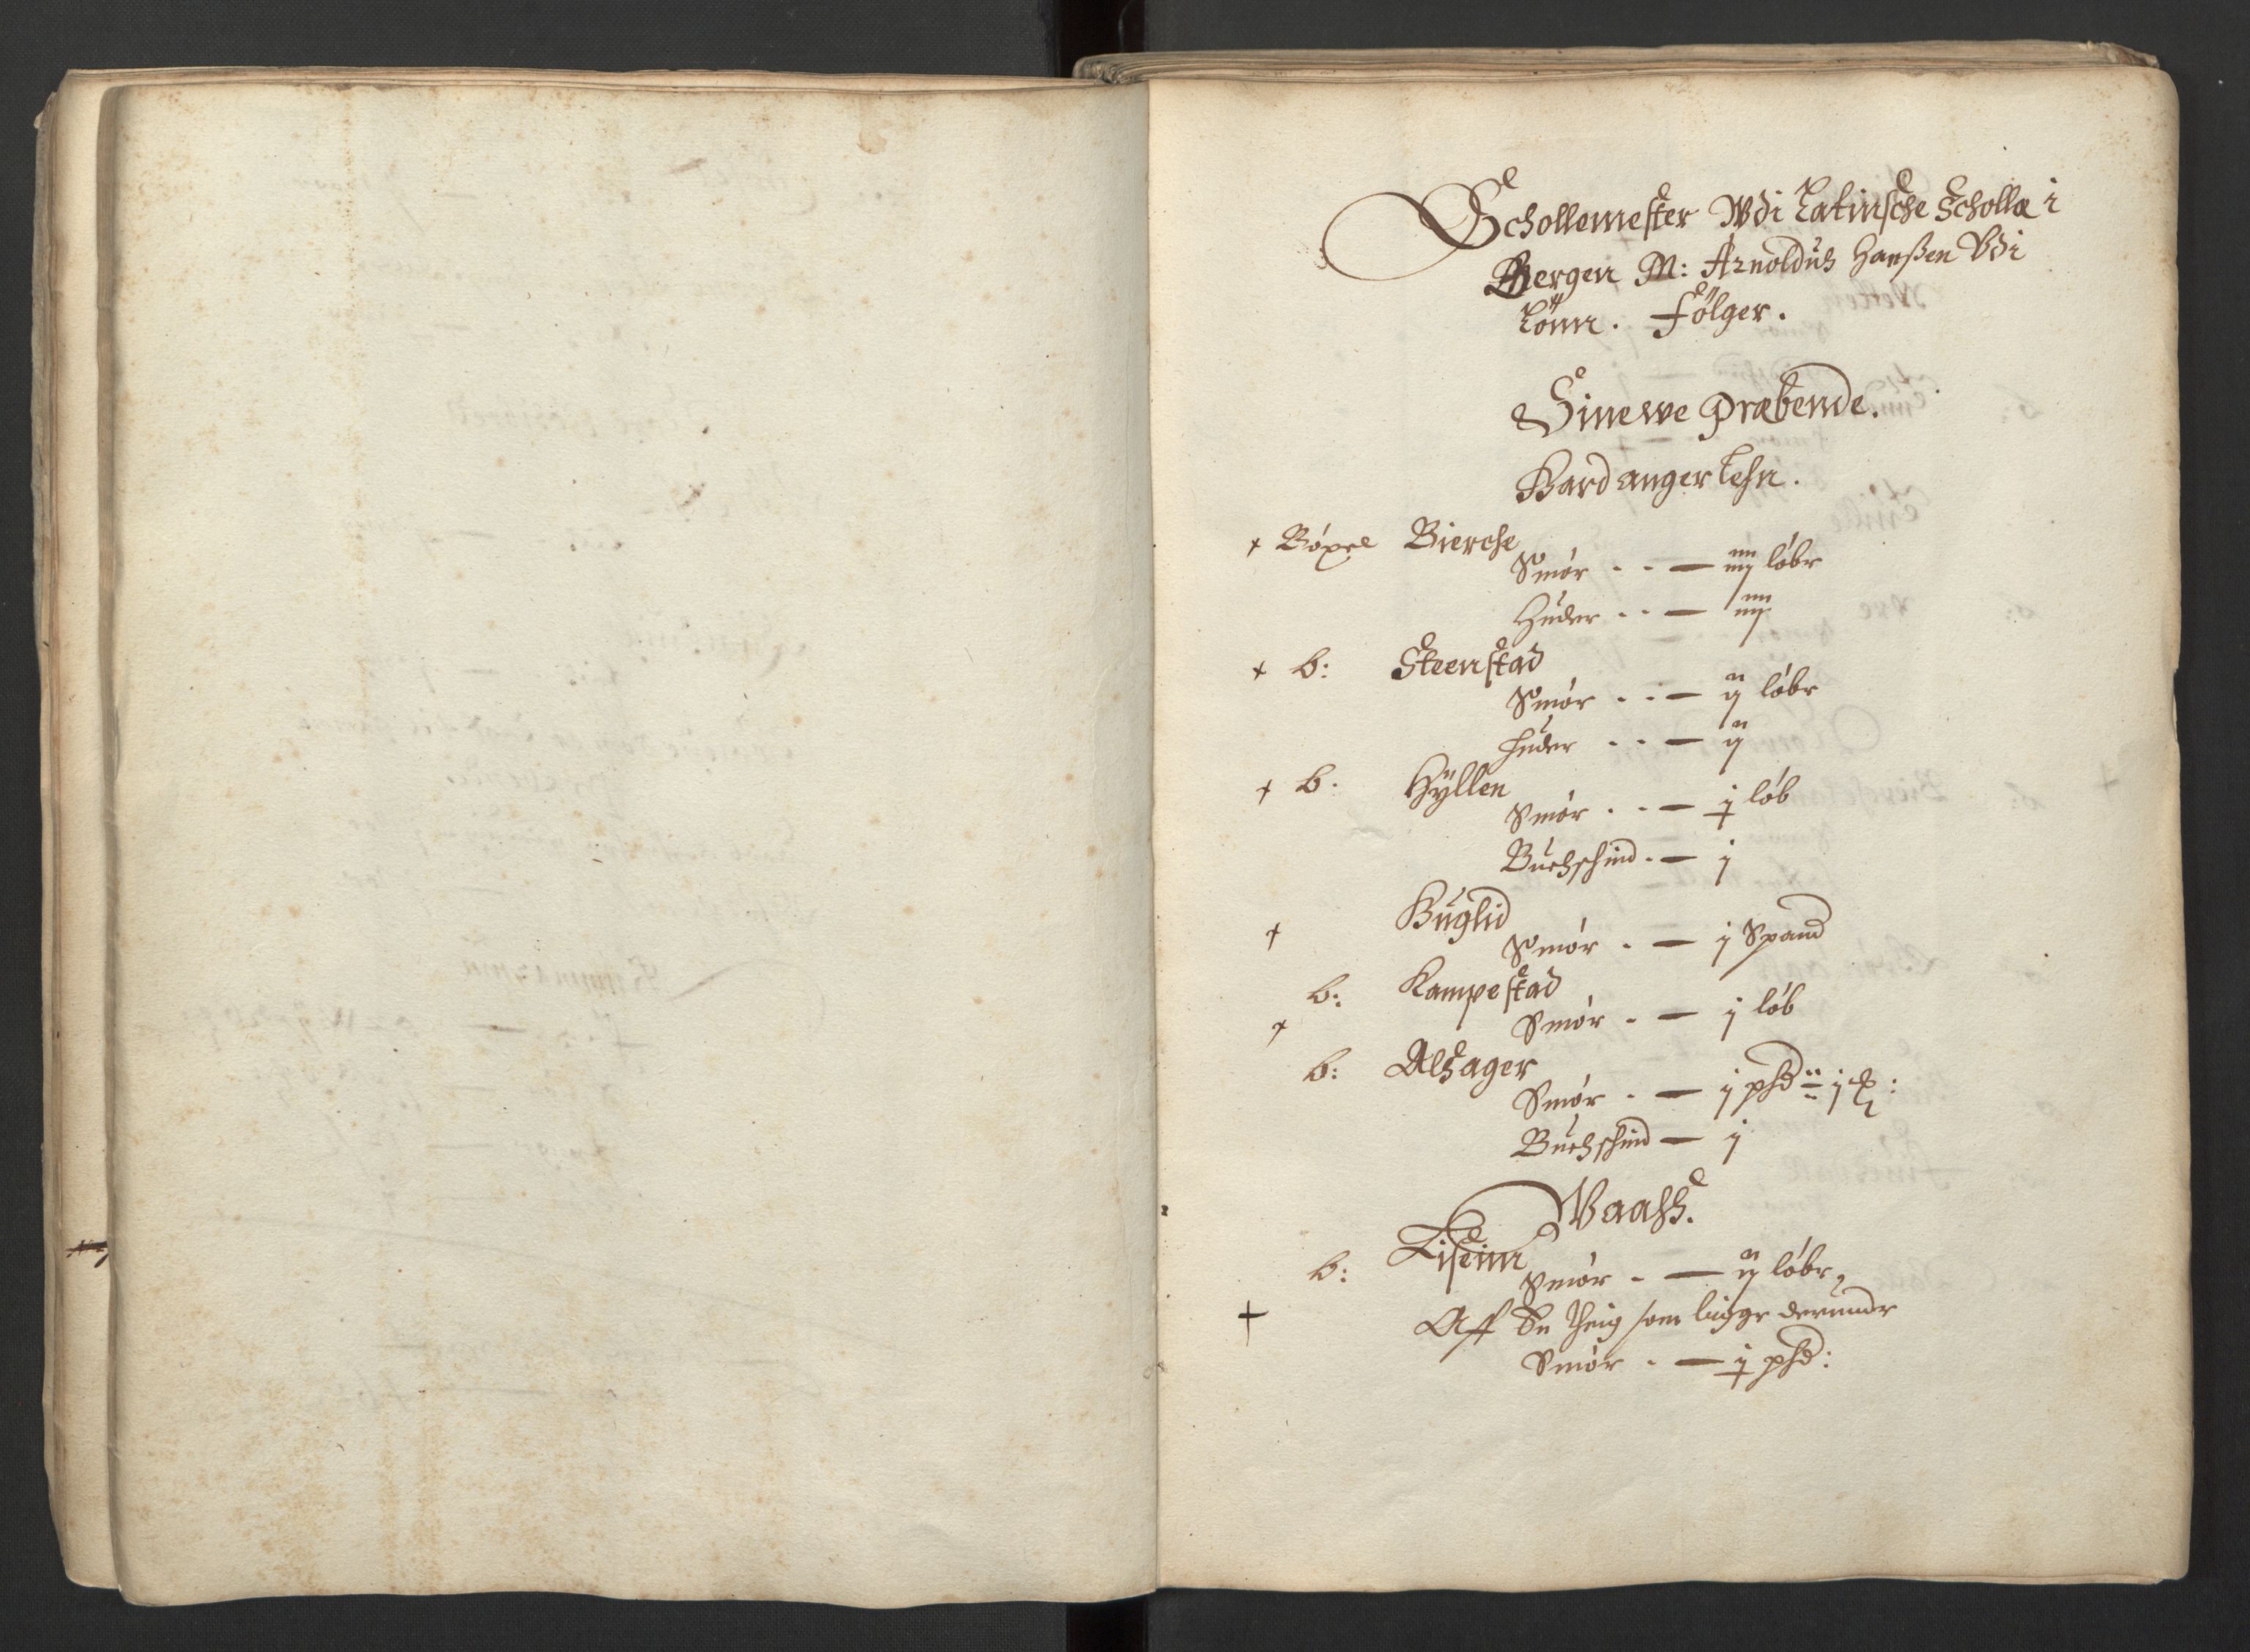 Schollemester Wdi Latinsche Scholla i
Bergen M: Arnoldus Hanßen Vdi
Lönn. Fölger.
Sinewe Præbende.
Hardanger Lehn.
+ Bóxel Bierche
Smór - - — iiij lóbr
Huder - - — iiij
+ b: Steenstad
Smór - - — ij lóbr
huder - - — ij
+ b. Hÿllen
Smór - - — j lób
Buchschind - — j
+ Huglid
Smór - — j Spand
b: Kampestad
+ Smór - — j lób
b: Alsager
Smór - — j phd
Buchschind — j
Waasß.
b: Liseim
Smór - — ij lóbr,
+ Aff En theig som ligger derunder
Smór - — j phd: